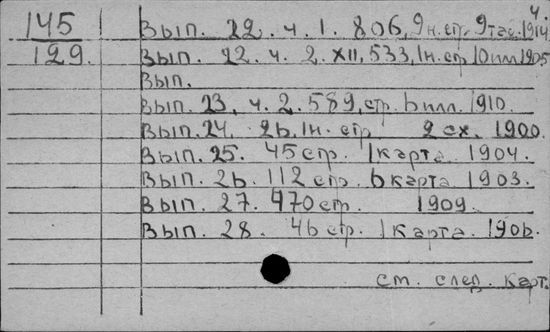 145
129
Вып. 22. ч. 1. 806, 9н. стр. 9 таб. 1914
Вып. 22. ч. 2. XII, 533, 1н. стр 10 илл 1905
Вып.
Вып. 23. ч. 2. 589, стр. 6 илл. 1910.
Вып. 24. 26, 1н. стр. 2 сх. 1900.
Вып. 25. 45 стр. 1 карта 1904.
Вып. 26. 112 стр. 6 карта 1903.
Вып. 27. 470 стр. 1909.
Вып. 28. 46 стр. 1 карта. 1906.
см. след. карт.